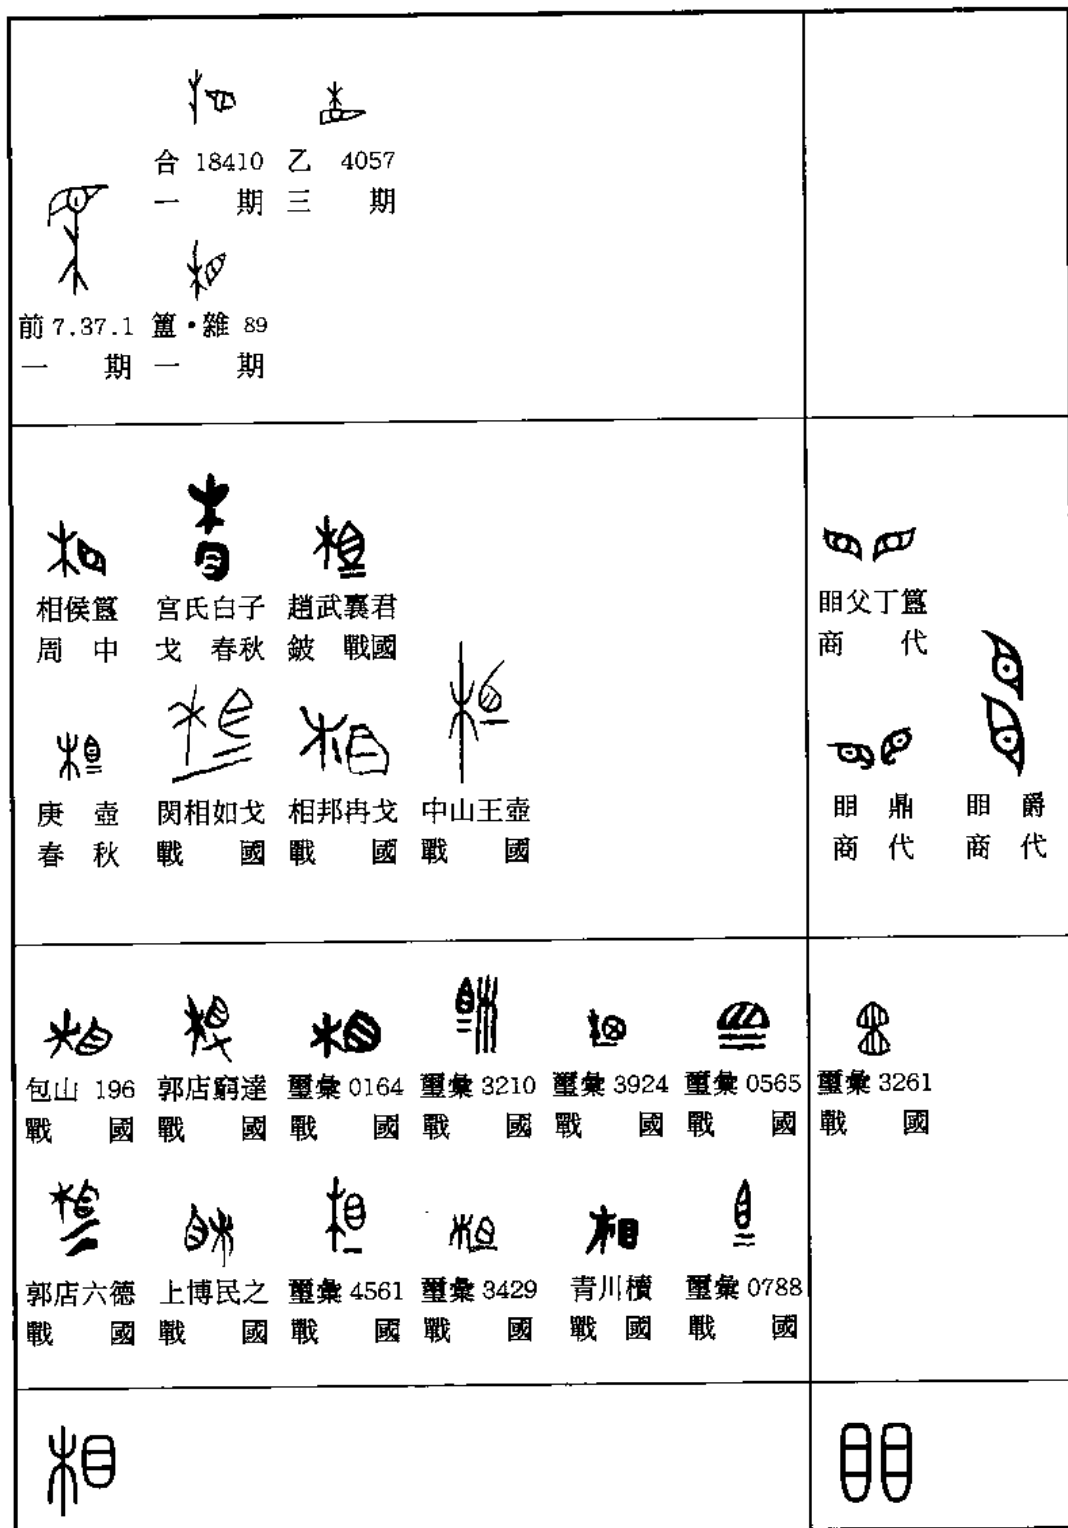 合 18410 乙 4057
一 期 三 期
前 7.37.1 簠·雜 89
一 期 一 期
相侯簋 宮氏白子 趙武襄君
周 中 戈 春秋 鈹 戰國
庚 壺 閔相如戈 相邦冉戈 中山王壺
春 秋 戰 國 戰 國 戰 國
䀠父丁簋
商 代
䀠 鼎 䀠 爵
商 代 商 代
包山 196 郭店窮達 璽彙 0164 璽彙 3210 璽彙 3924 璽彙 0565 璽彙 3261
戰 國 戰 國 戰 國 戰 國 戰 國 戰 國 戰 國
郭店六德 上博民之 璽彙 4561 璽彙 3429 青川杝 璽彙 0788
戰 國 戰 國 戰 國 戰 國 戰 國 戰 國
相 䀠